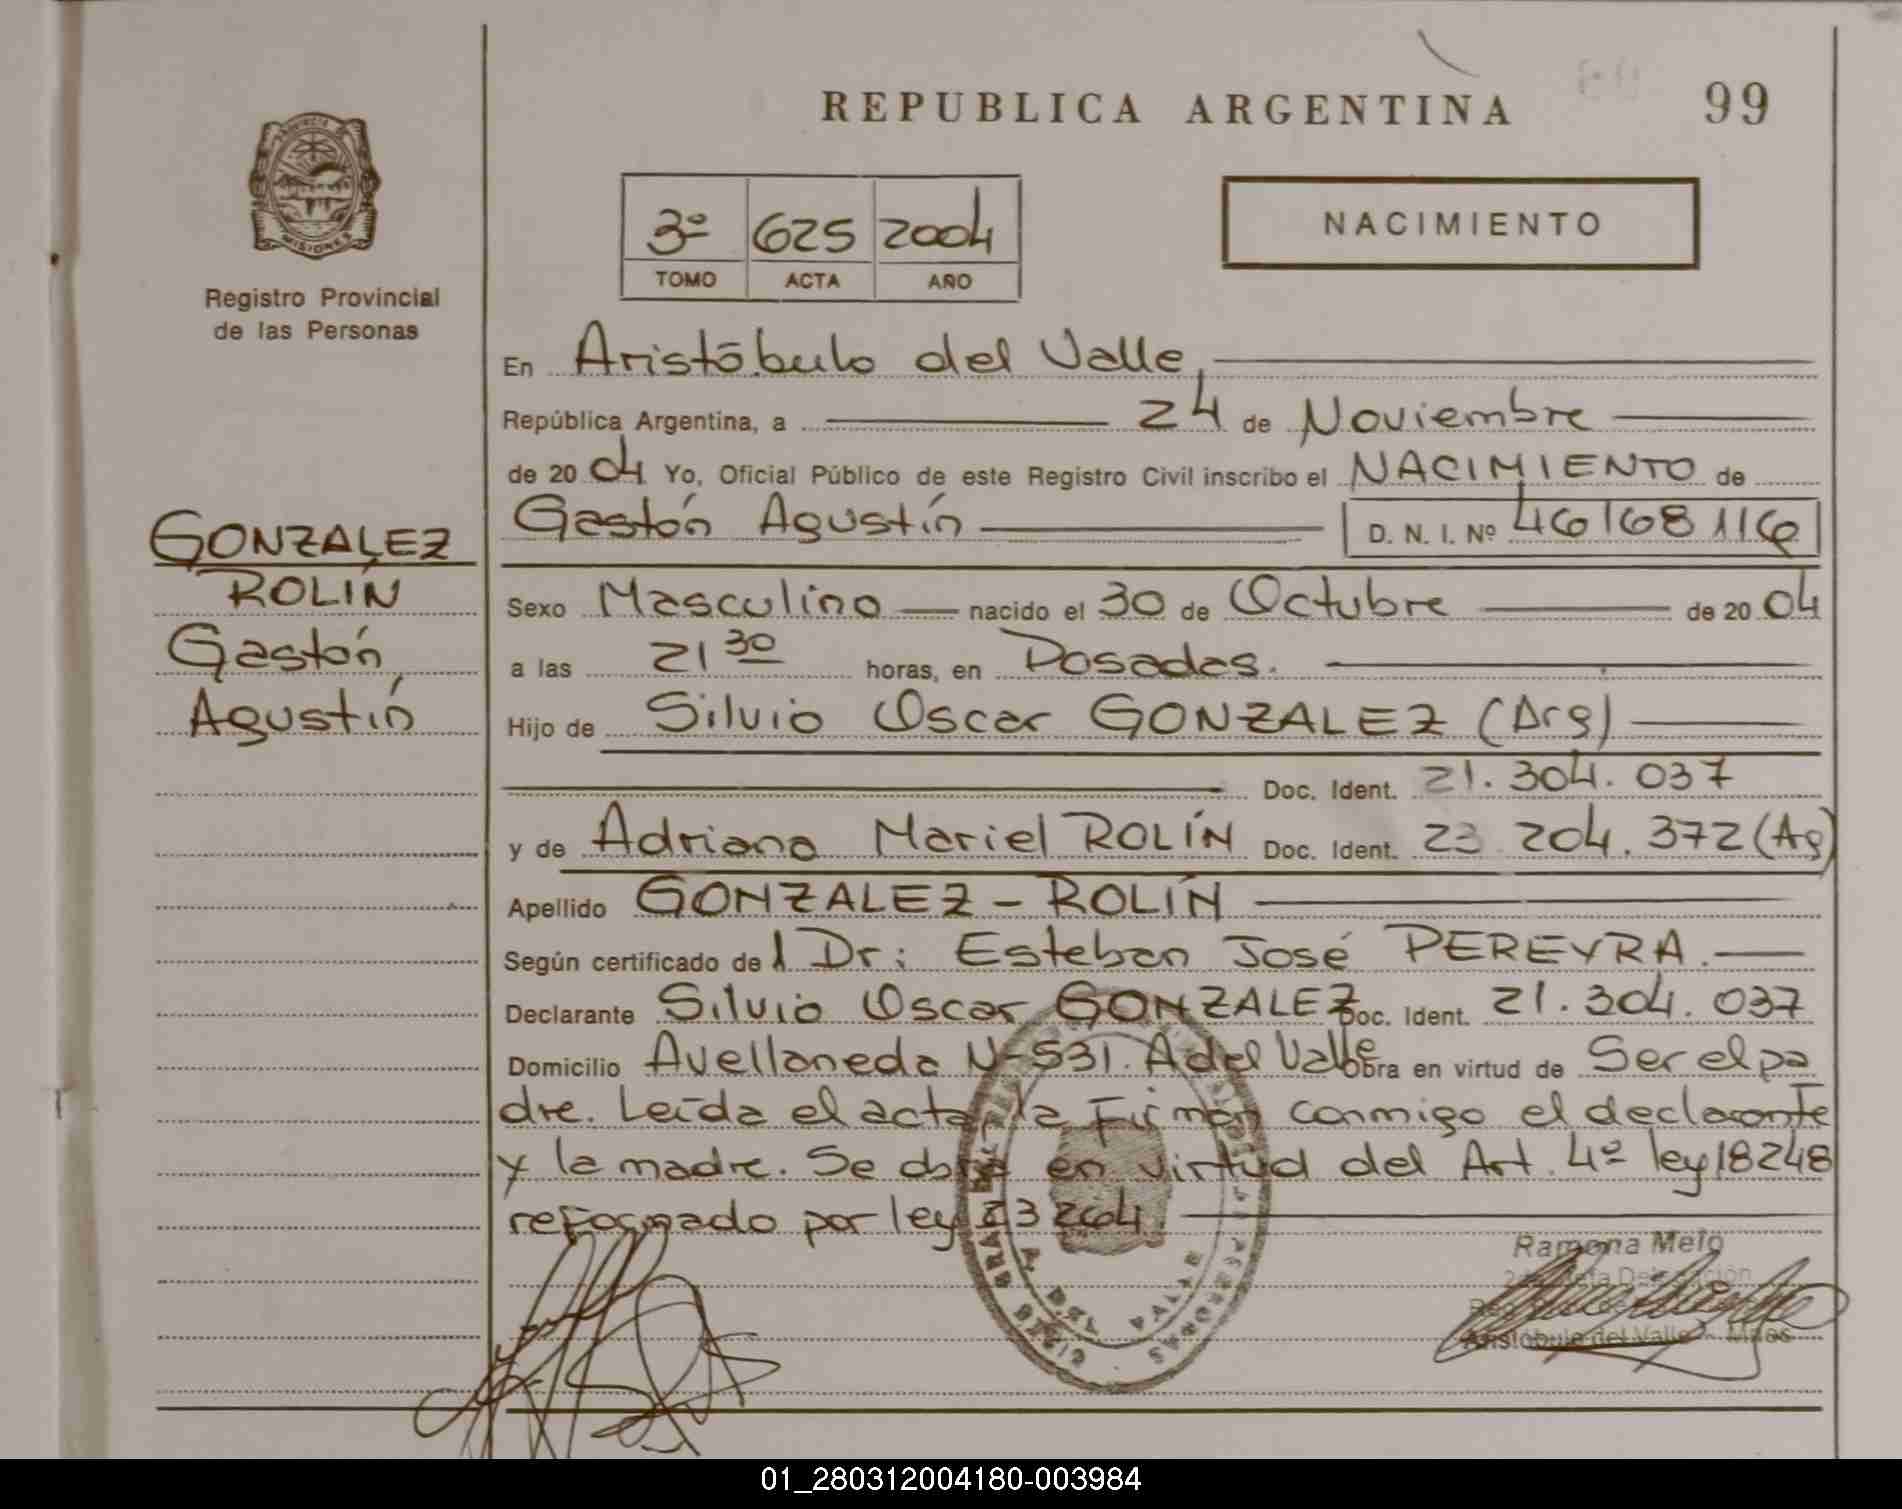 REPUBLICA ARGENTINA
99
PROVINCIA DE
MISIONES
Registro Provincial
de las Personas
3º 625 2004
TOMO ACTA AÑO
NACIMIENTO
En Aristóbulo del Valle,
República Argentina, a 24 de Noviembre
de 2004 Yo, Oficial Público de este Registro Civil inscribo el NACIMIENTO de
Gastón Agustín D. N. I. Nº 46168116
GONZALEZ
ROLÍN
Gastón
Agustín
Sexo Masculino nacido el 30 de Octubre de 2004
a las 21 30 horas, en Posadas.
Hijo de Silvio Oscar GONZALEZ (Arg)
Doc. Ident. 21.304.037
y de Adriana Mariel ROLÍN Doc. Ident. 23 204.372 (Ag)
Apellido GONZALEZ - ROLÍN
Según certificado del Dr: Esteban José PEREYRA.
Declarante Silvio Oscar GONZALEZ Doc. Ident. 21.304.037
Domicilio Avellaneda Nº 531. A del Valle Obra en virtud de Ser el pa
dre. Leída el acta la Firman conmigo el declarante
y la madre. Se obra en virtud del Art. 4º ley 18248
reformado por ley 23264.
Ramona Melo
Delegación
Aristóbulo del Valle - Mnes
A. DEL VALLE
01_280312004180-003984